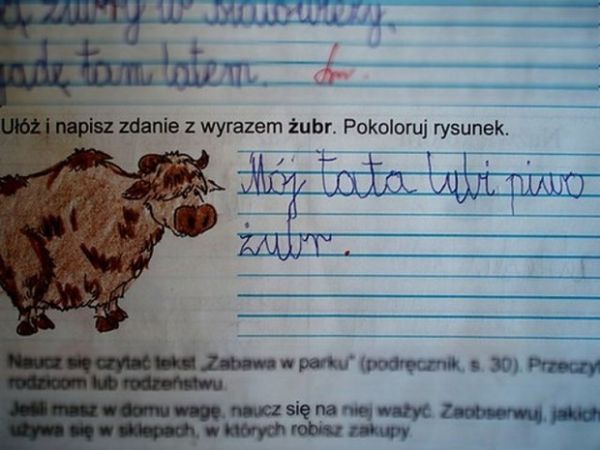 żubry w Białowieży.
jadę tam latem.
Ułóż i napisz zdanie z wyrazem żubr. Pokoloruj rysunek.
Mój tata lubi piwo
żubr.
Naucz się czytać tekst „Zabawa w parku" (podręcznik, s. 30). Przeczyt
rodzicom lub rodzeństwu.
Jeśli masz w domu wagę, naucz się na niej ważyć. Zaobserwuj, jakich
używa się w sklepach, w których robisz zakupy.